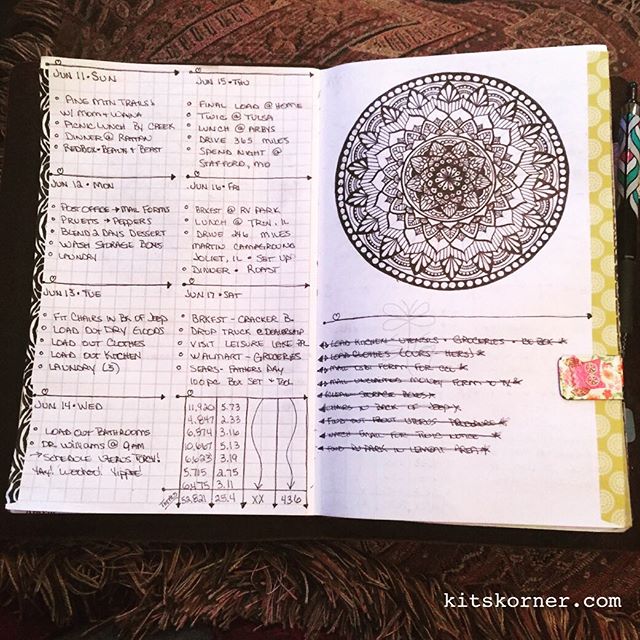 JUN 11 • SUN
PINE MTN TRAILS
W/ MOM & WANA
PICNIC LUNCH BY CREEK
DINNER @
REDBOX • BEAUTY & BEAST
JUN 12 • MON
POST OFFICE → MAIL FORMS
PRUETTS → PEPPERS
BLEND 2 DAYS DESSERT
WASH STORAGE BOXES
LAUNDRY
JUN 13 • TUE
FIT CHAIRS IN BK OF JEEP
LOAD OUT DRY GOODS
LOAD OUT CLOTHES
LOAD OUT KITCHEN
LAUNDRY (3)
JUN 14 • WED
LOAD OUT BATHROOMS
DR WILLIAMS @ 9AM
→ SCHEDULE
Yay! Weeded! Yippee!
JUN 15 • THU
FINAL LOAD @ HOME
TWIC @ TULSA
LUNCH @ ARBYS
DRIVE 365 MILES
SPEND NIGHT @
STAFFORD, MO
JUN 16 • FRI
BRKFST @ RV PARK
LUNCH @ TRON, IL
DRIVE 246 MILES
MARTIN CAMPGROUND
JOLIET, IL • SET UP!
DINNER • ROAST
JUN 17 • SAT
BRKFST - CRACKER B.
DROP TRUCK @ DEALERSHIP
VISIT LEISURE LAKE
WALMART - GROCERIES
SEARS - FATHERS DAY
100 PC BOX SET
11,920 5.73
4,847 2.33
6,874 3.16
10,667 5.13
6,623 3.19
5,715 2.75
6,475 3.11
TOTALS 52,821 25.4 XX 436
LOAD KITCHEN • UTENSILS • GROCERIES
LOAD CLOTHES (OURS & HERS)
MAIL FORM FOR
MAIL FORM TO
STORAGE BOXES
CHAIRS IN BACK OF JEEP
FIND OUT ABOUT
WATCH EMAIL FOR TWIC NOTICE
kitskorner.com